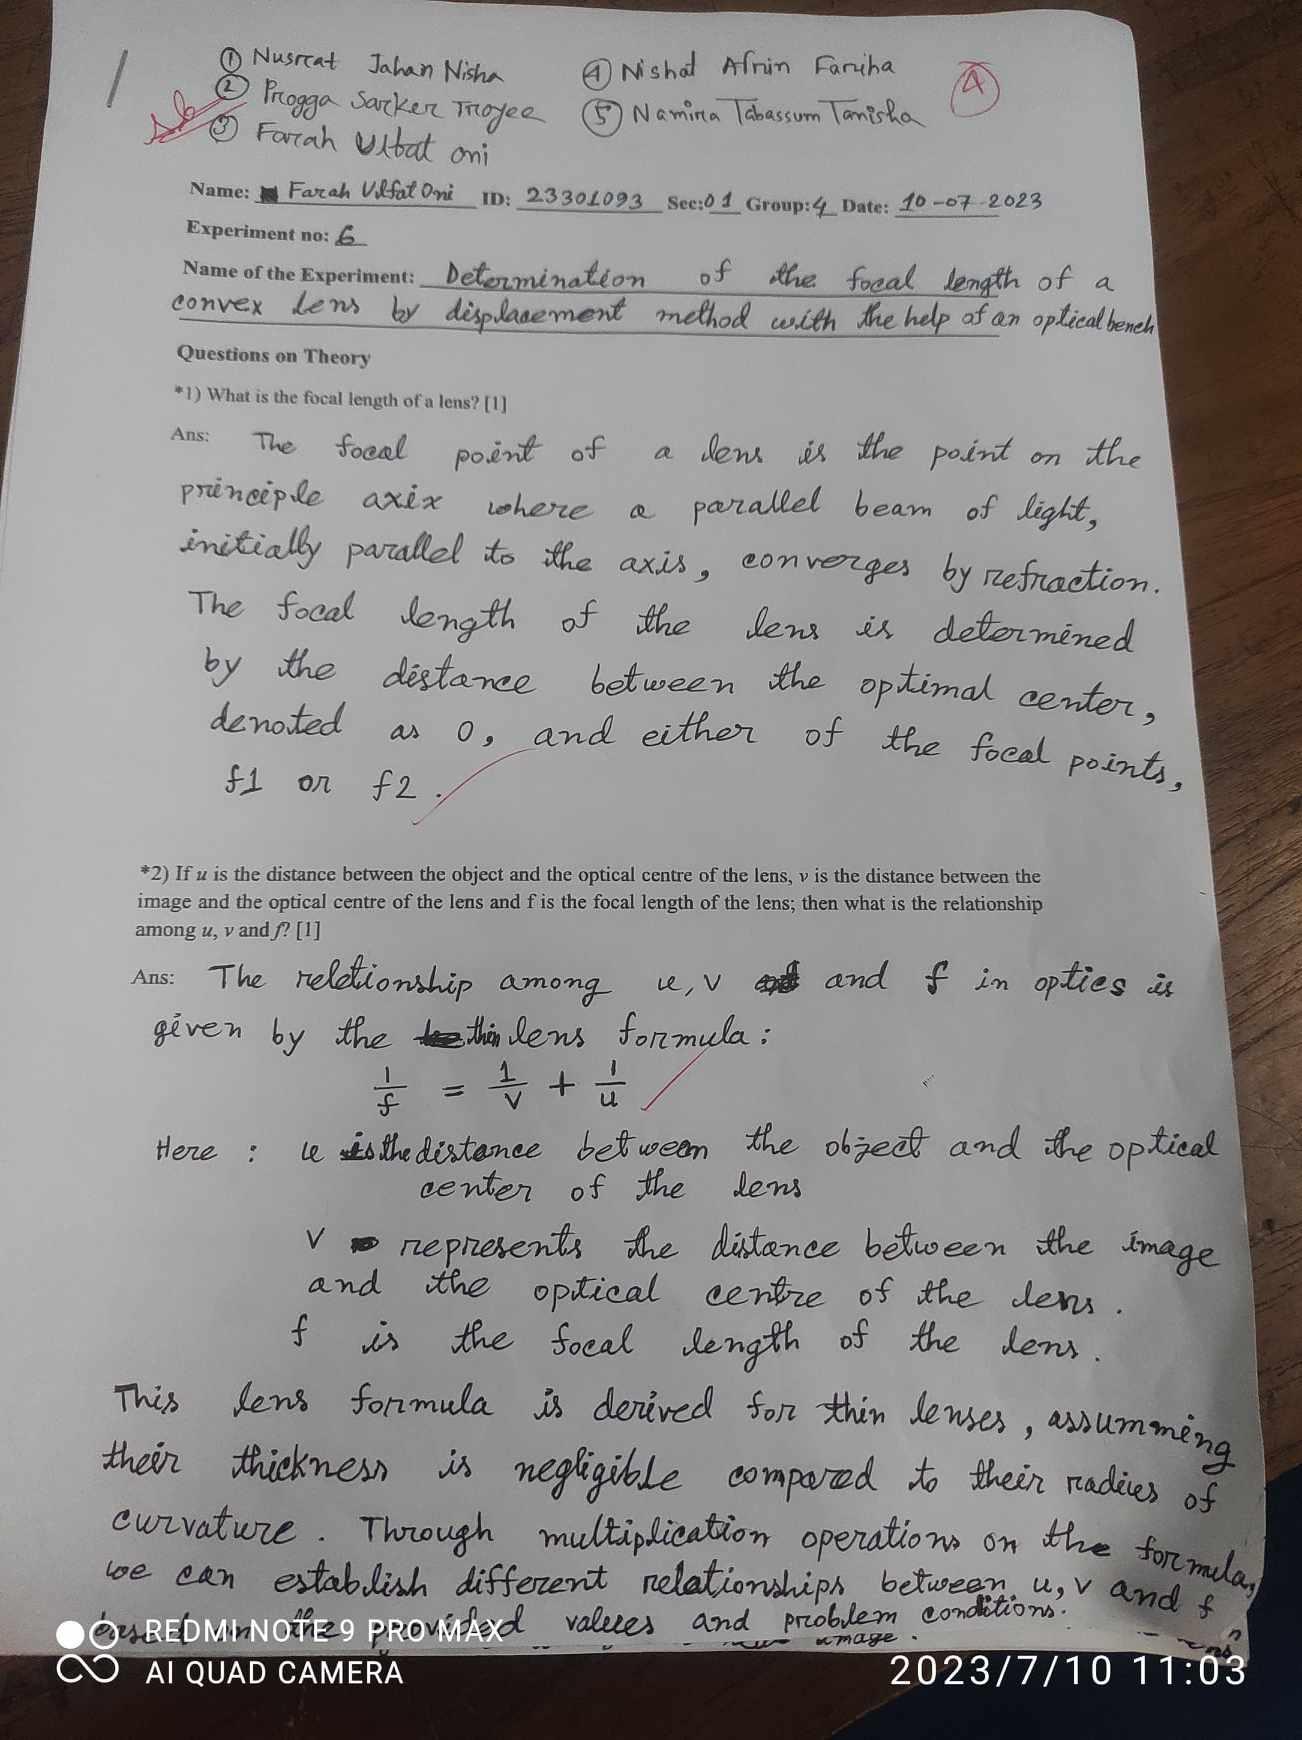 ① Nusrat Jahan Nisha
② Progga Sarker Troyee
③ Farah Ulfat oni
④ Nishat Afrin Fariha
⑤ Namira Tabassum Tanisha
4
Name: Farah Ulfat Oni ID: 23301093 Sec: 01 Group: 4 Date: 10-07-2023
Experiment no: 6
Name of the Experiment: Determination of the focal length of a
convex lens by displacement method with the help of an optical bench
Questions on Theory
*1) What is the focal length of a lens? [1]
Ans: The focal point of a lens is the point on the
principle axix where a parallel beam of light,
initially parallel to the axis, converges by refraction.
The focal length of the lens is determined
by the distance between the optimal center,
denoted as O, and either of the focal points,
f1 or f2.
*2) If u is the distance between the object and the optical centre of the lens, v is the distance between the
image and the optical centre of the lens and f is the focal length of the lens; then what is the relationship
among u, v and f? [1]
Ans: The reletionship among u, v and f in optics is
given by the thin lens formula:
1/f = 1/v + 1/u
Here : u is the distance between the object and the optical
center of the lens
v represents the distance between the image
and the optical centre of the lens.
f is the focal length of the lens.
This lens formula is derived for thin lenses, assumming
their thickness is negligible compared to their radius of
curvature. Through multiplication operations on the formula,
we can establish different relationships between u, v and f
based on the provided values and problem conditions.
image.
REDMI NOTE 9 PRO MAX
AI QUAD CAMERA
2023/7/10 11:03